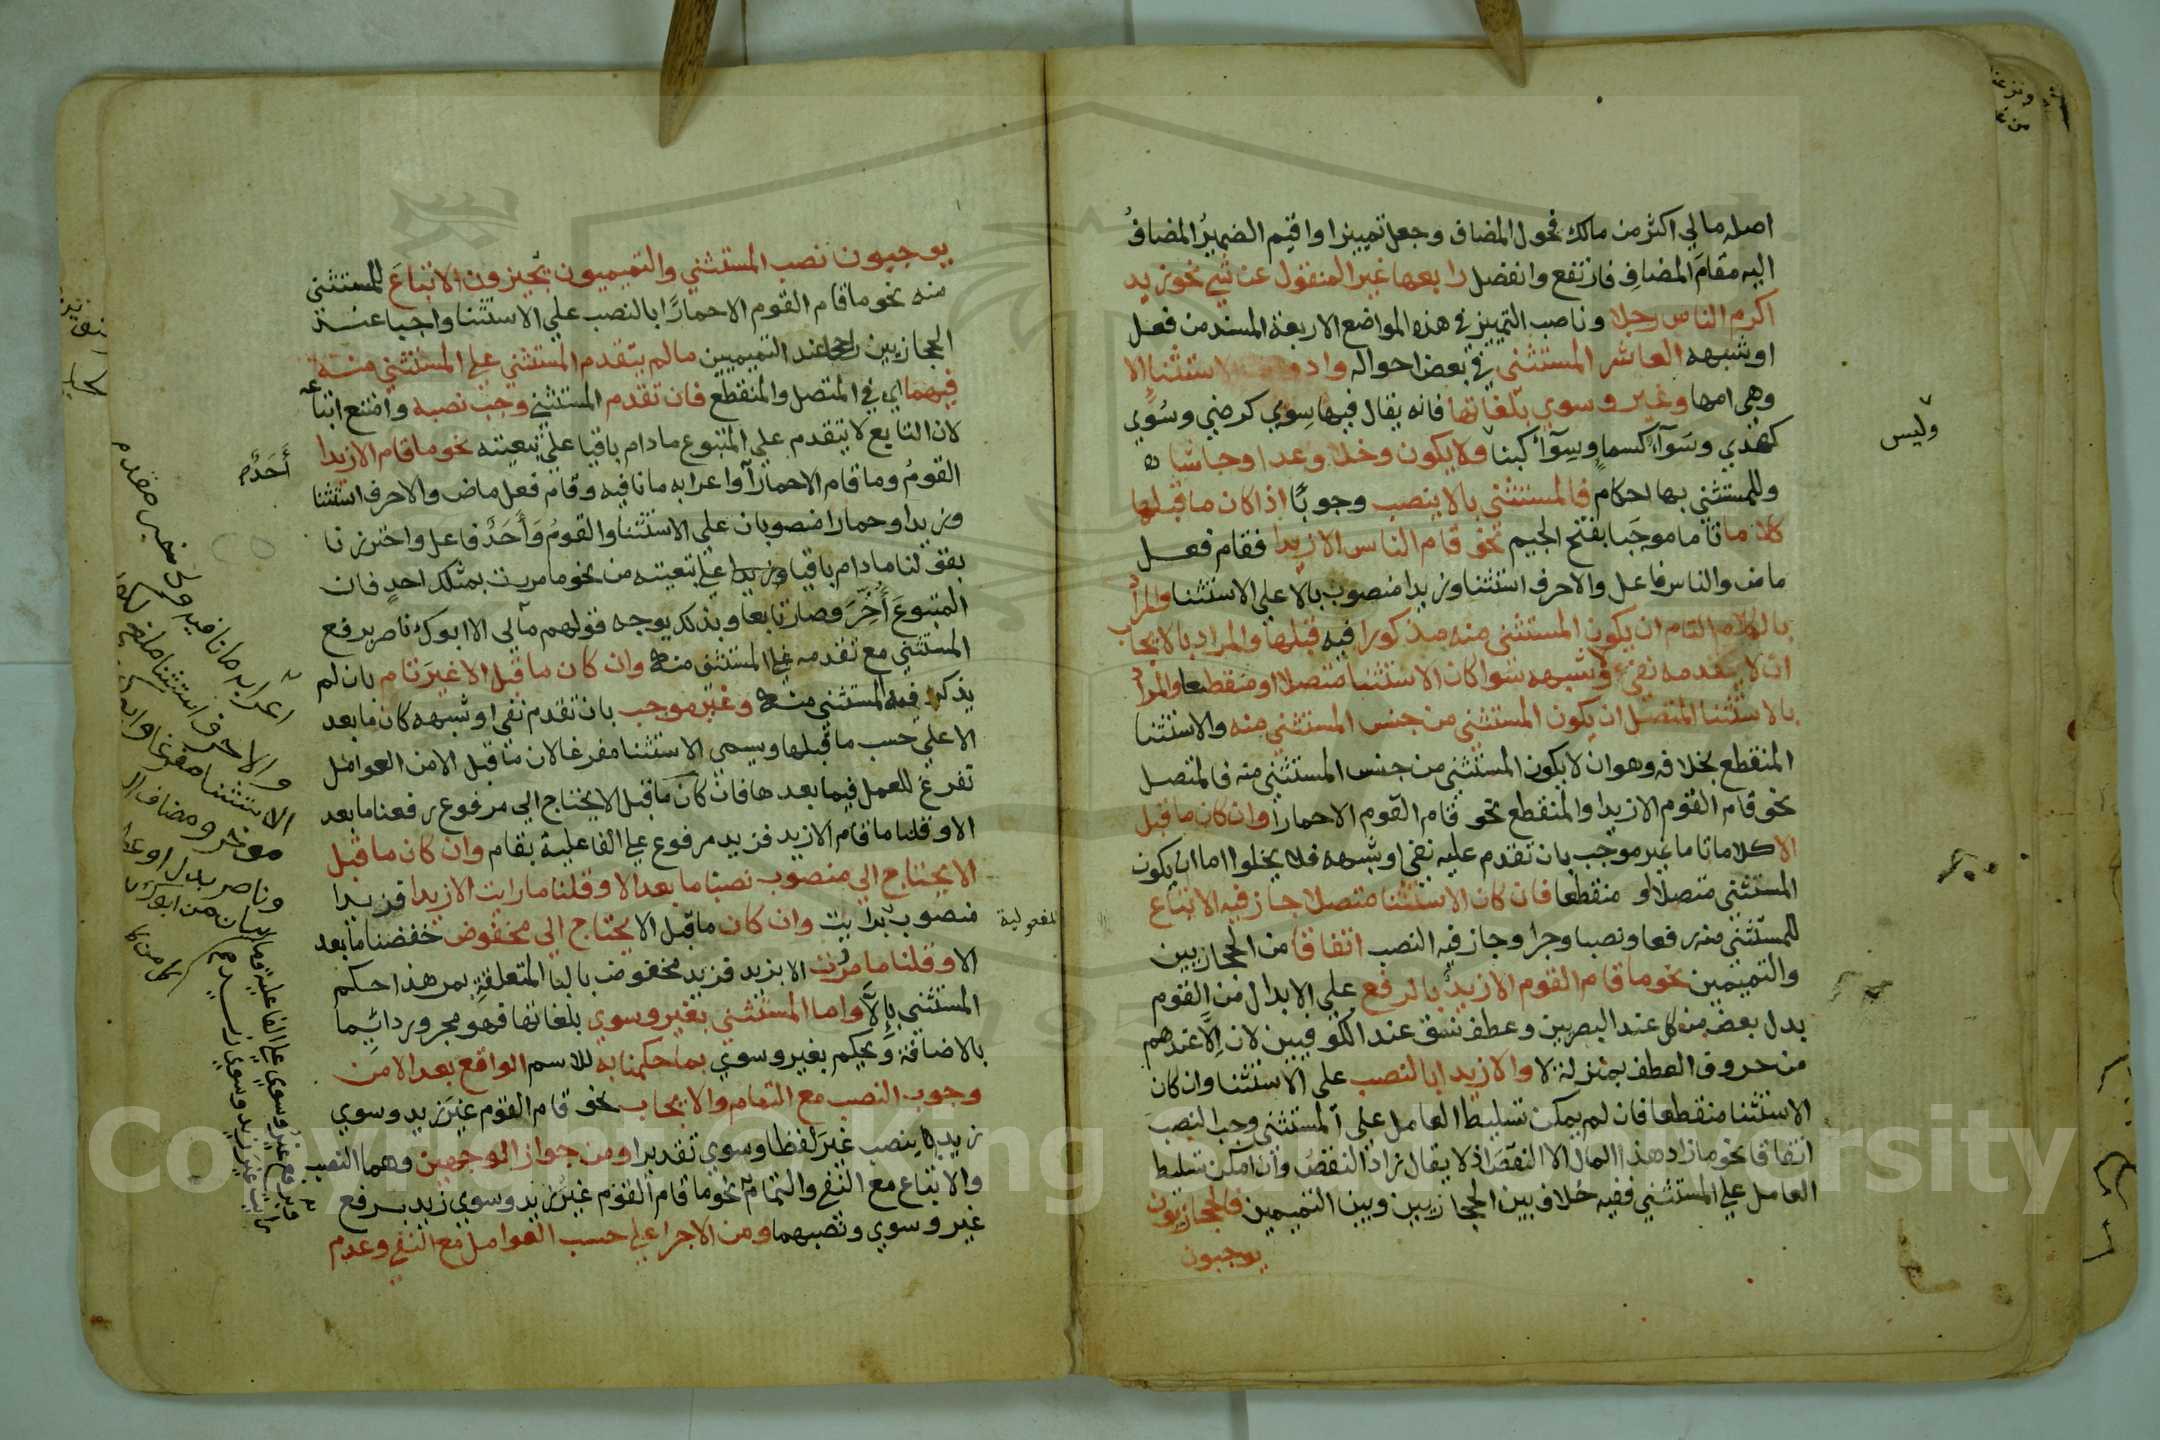 اصله مالي اكثر من مالك فحول المضاف وجعل تمييزا واقيم الضمير المضاف
اليه مقام المضاف فارتفع وانفصل رابعها غير المنقول عن شي نحو زيد
اكرم الناس رجلا وناصب التمييز في هذه المواضع الاربعة المسند من فعل
او شبهه العاشر المستثني في بعض احواله وادوات الاستثنا الا
وهي امها وغير وسوي بلغاتها فانه يقال فيها سوي كرضي وسوي
كهدي وسوآء كسماء وسوآء كبنا ولا يكون وخلا وعدا وحاشا
وليس
وللمستثني بها احكام فالمستثني بالا ينصب وجوبا اذا كان ما قبلها
كلاما تاما موجبا بفتح الجيم نحو قام الناس الا زيدا فقام فعل
ماض والناس فاعل والا حرف استثنا وزيدا منصوب بالا علي الاستثنا والمراد
بالكلام التام ان يكون المستثني منه مذكورا فيه قبلها والمراد بالايجاب
ان لا يتقدمه نفي وشبهه سوا كان الاستثنا متصلا او منقطعا والمراد
بالاستثنا المتصل ان يكون المستثني من جنس المستثني منه والاستثنا
المنقطع بخلافه وهو ان لا يكون المستثني من جنس المستثني منه فالمتصل
نحو قام القوم الا زيدا والمنقطع نحو قام القوم الا حمارا وان كان ما قبل
الا كلاما تاما غير موجب بان تقدم عليه نفي او شبهه فلا يخلوا اما ان يكون
المستثني متصلا او منقطعا فان كان الاستثنا متصلا جاز فيه الاتباع
للمستثني منه رفعا ونصبا وجرا وجاز فيه النصب اتفاقا من الحجازيين
والتميمين نحو ما قام القوم الا زيد بالرفع علي الابدال من القوم
بدل بعض من كل عند البصريين وعطف نسق عند الكوفيين لان الا عندهم
من حروف العطف بمنزلة لا والا زيدا بالنصب علي الاستثنا وان كان
الاستثنا منقطعا فان لم يمكن تسليط العامل علي المستثني وجب النصب
اتفاقا نحو ما زاد هذا المال الا النقص اذ لا يقال زاد النقص وان امكن تسليط
العامل علي المستثني ففيه خلاف بين الحجازيين وبين التميميين فالحجازيون
يوجبون
يوجبون نصب المستثني والتميميون يجيزون الاتباع للمستثني
منه نحو ما قام القوم الا حمارا بالنصب علي الاستثنا واجبا عند
الحجازيين راجحا عند التميميين ما لم يتقدم المستثني علي المستثني منه
فيهما اي في المتصل والمنقطع فان تقدم المستثني وجب نصبه وامتنع اتباعه
لان التابع لا يتقدم علي المتبوع مادام باقيا علي تبعيته نحو ما قام الا زيدا
القوم وما قام الا حمارا
أحد
واعرابه ما نافيه وقام فعل ماض والا حرف استثنا
وزيدا وحمارا منصوبان علي الاستثنا والقوم وأحد فاعل واحترزنا
بقولنا مادام باقيا علي تبعيته من نحو ما مررت بمثلك احد فان
المتبوع أخر وصار تابعا وبذلك يوجه قولهم مالي الا ابوك ناصر برفع
المستثني مع تقدمه علي المستثني منه وان كان ما قبل الا غير تام بان لم
يذكر فيه المستثني منه وغير موجب بان تقدم نفي او شبهه كان ما بعد
الا علي حسب ما قبلها ويسمي الاستثنا مفرغا لان ما قبل الا من العوامل
تفرغ للعمل فيما بعدها فان كان ما قبل الا يحتاج الي مرفوع رفعنا ما بعد
الا وقلنا ما قام الا زيد فزيد مرفوع علي الفاعلية بقام وان كان ما قبل
الا يحتاج الي منصوب نصبنا ما بعد الا وقلنا ما رايت الا زيدا فزيدا
منصوب برايت وان كان ما قبل الا يحتاج الي مخفوض خفضنا ما بعد
الا وقلنا ما مررت الا بزيد فزيد مخفوض بالبا المتعلقة بمر هذا حكم
المستثني بإلا واما المستثني بغير وسوي بلغاتها فهو مجرور دائما
بالاضافة ويحكم بغير وسوي بما حكمنا به للاسم الواقع بعد الا من
وجوب النصب مع التمام والايجاب نحو قام القوم غير زيد وسوي
زيد بنصب غير لفظا وسوي تقديرا ومن جواز الوجهين وهما النصب
والاتباع مع النفي والتمام نحو ما قام القوم غير زيد وسوي زيد برفع
غير وسوي ونصبهما ومن الاجرا علي حسب العوامل مع النفي وعدم
المفعولية
اعرابه ما نافيه ولي خبر مقدم
والا حرف استثنا
Copyright © King Saud University